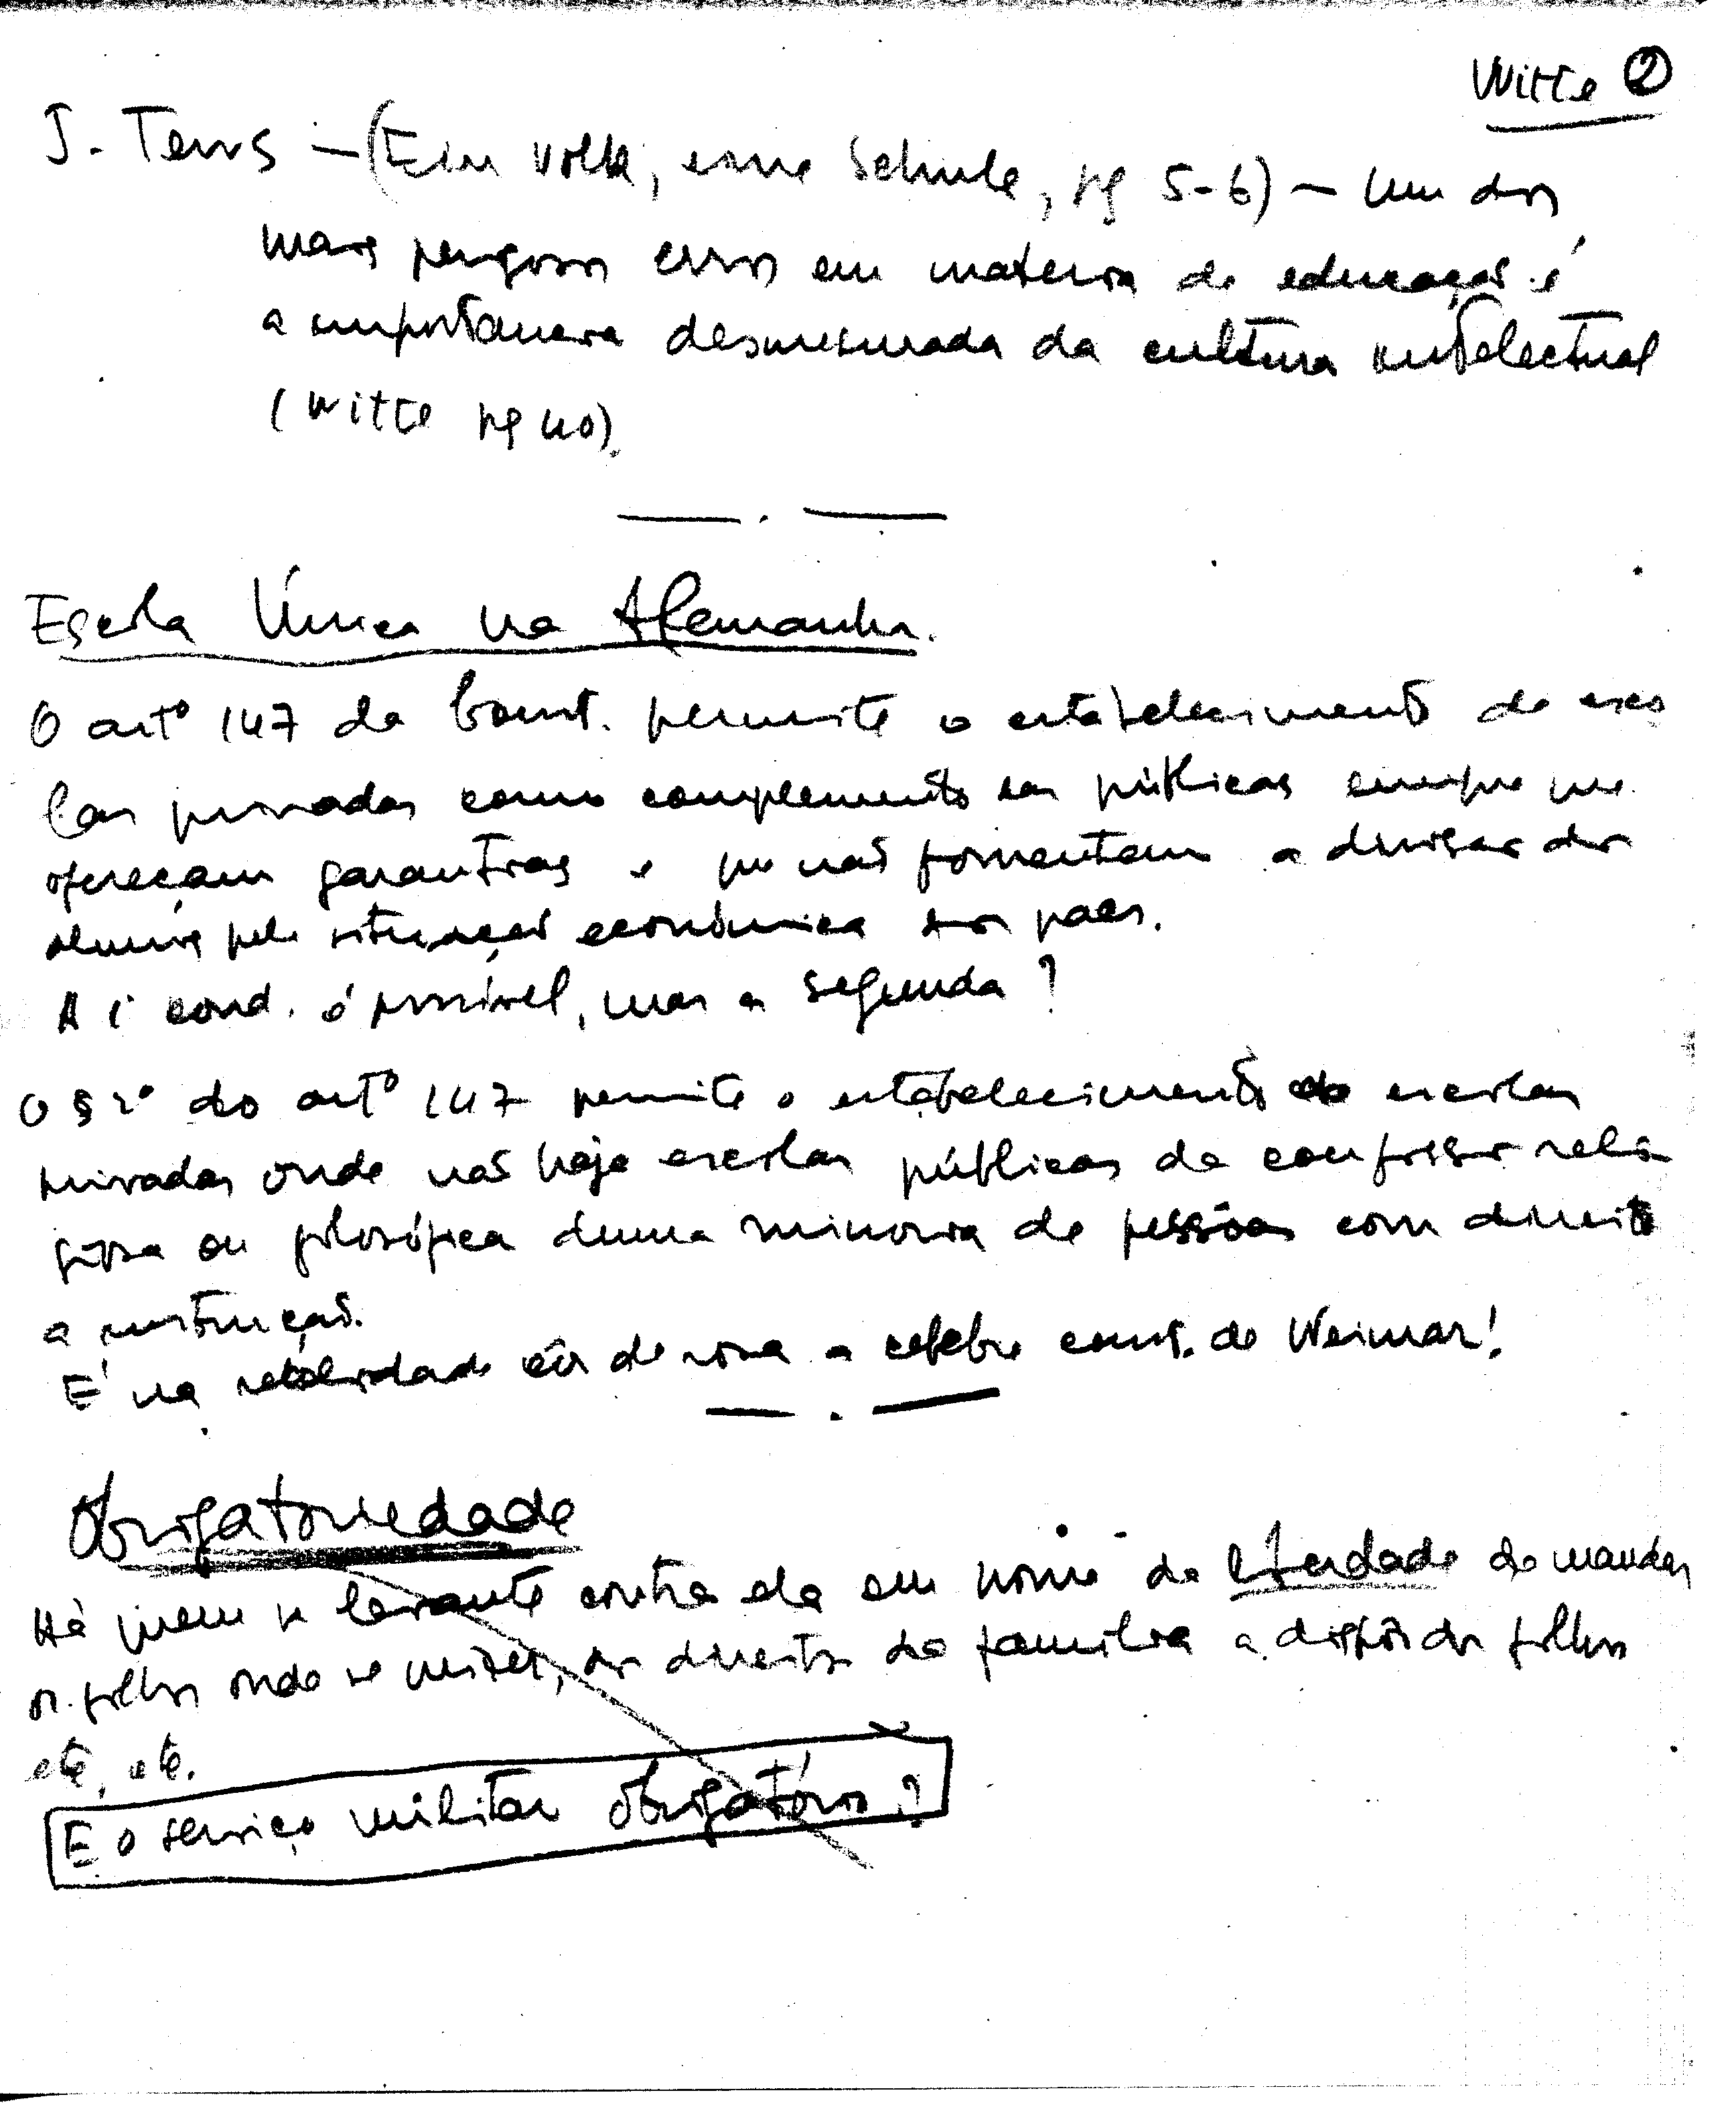 Witte ②
J. Tews — (Ein Volk, eine Schule, pg 5-6) — Um dos
mais perigosos erros em materia de educação é
a importancia desmesurada da cultura intelectual
(Witte pg 40).
Escola Única na Alemanha.
O artº 147 da Const. permite o estabelecimento de esco
las privadas como complemento das públicas sempre que
ofereçam garantias e que não fomentem a divisão dos
alunos pela situação económica dos paes.
A 1ª cond. é possível, mas a segunda?
O § 2º do artº 147 permite o estabelecimento de escolas
privadas onde não haja escolas públicas da confissão reli
giosa ou filosófica duma minoria de pessoas com direito
a instrução.
É na realidade côr de rosa a celebre const. de Weimar!
Obrigatoriedade
Há quem se levante contra ela em nome da liberdade de mandar
os filhos onde se quizer, do direito da familia a dispôr dos filhos
etc, etc.
E o serviço militar obrigatório?